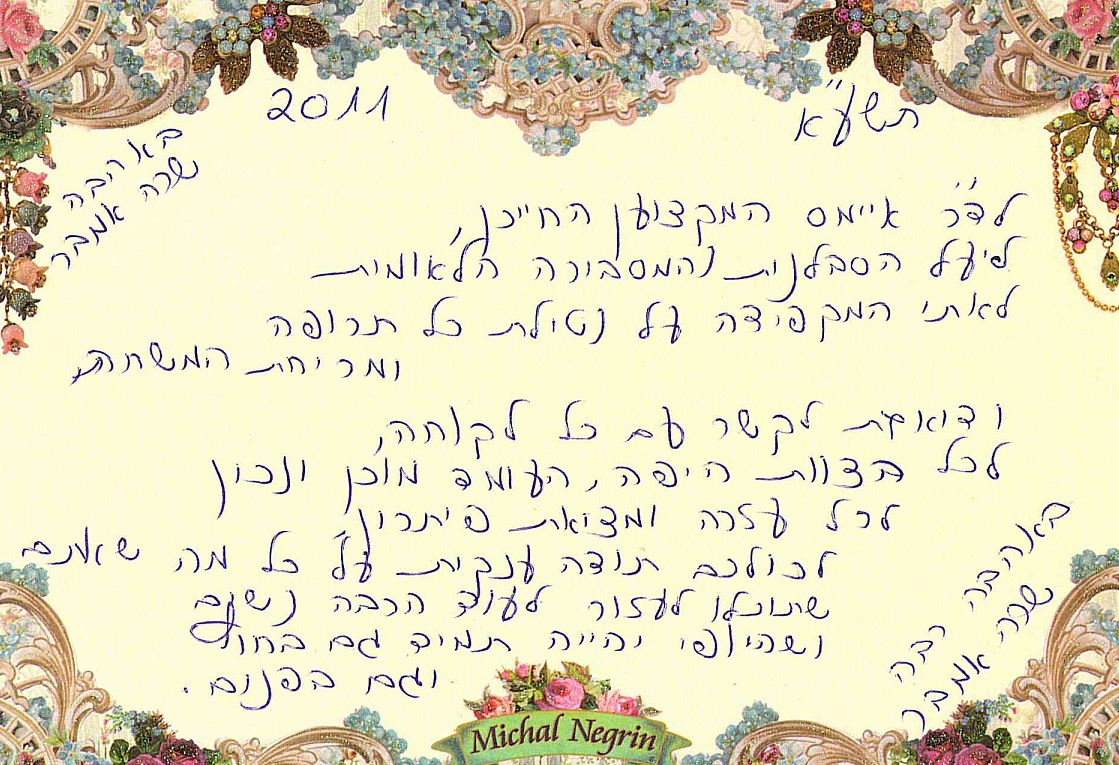 תשע"א
2011
באהבה
שרה אמבר
לד"ר אייסם המקצוען החייכן,
ליעל הסבלנית והמסבירה הלאומית
לאתי המקפידה על נטילת כל תרופה
ומריחת המשחות,
ודואגת לקשר עם כל לקוחה,
לכל הצוות היפה, העומד מוכן ונכון
לכל עזרה ומציאת פיתרון,
לכולכם תודה ענקית על כל מה שאתם
שתוכלו לעזור לעוד הרבה נשים
ושהיופי יהייה תמיד גם בחוץ
וגם בפנים.
באהבה רבה
שרה אמבר
Michal Negrin